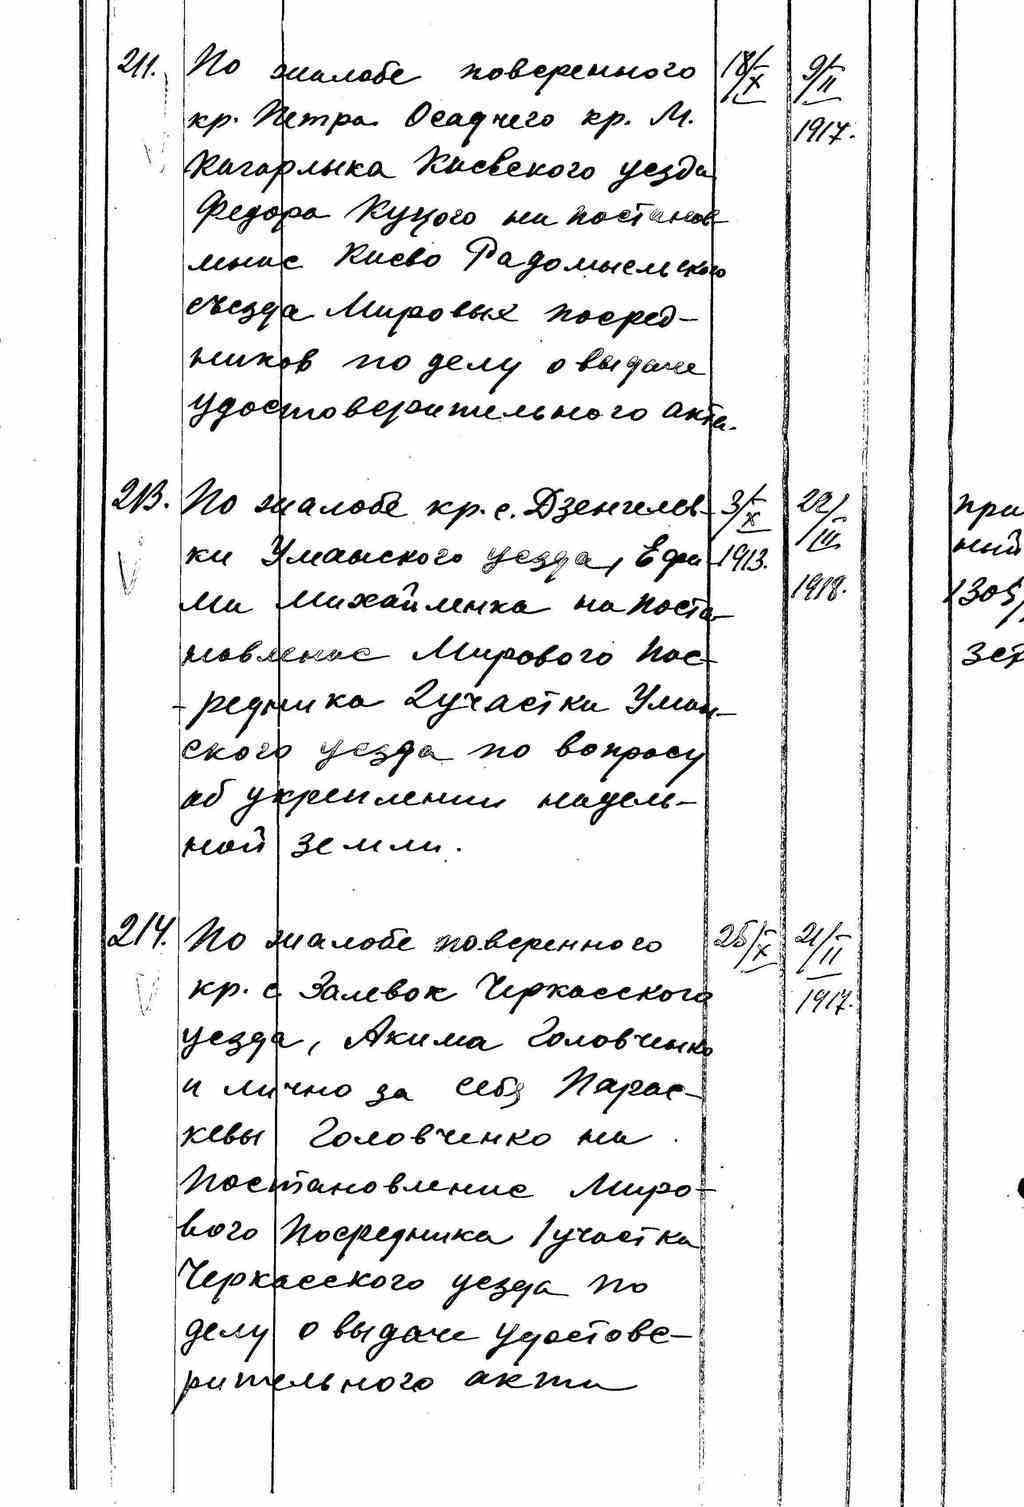 211. По жалобе поверенного 18/X 9/II
кр. Петра Осадчего кр. М. 1917.
Кагарлыка Киевского уезда
Федора Куцого на постанов-
ление Киево Радомысльского
съезда Мировых посред-
ников по делу о выдаче
удостоверительного акта.
213. По жалобе кр. с. Дзенгелев- 3/X 22/III при
ки Уманского уезда, Ефи- 1913. ный
ма Михайленка на поста- 1918. 1305/
новление Мирового Пос-
-редника 2 участка Уман-
ского уезда по вопросу
об укреплении надель-
ной земли.
214. По жалобе поверенного 25/X 21/II
кр. с. Залевок Черкасского 1917.
уезда, Акима Головченко
и лично за себя Парас-
кевы Головченко на
Постановление Миро-
вого Посредника 1 участка
Черкасского уезда по
делу о выдаче удостове-
рительного акта